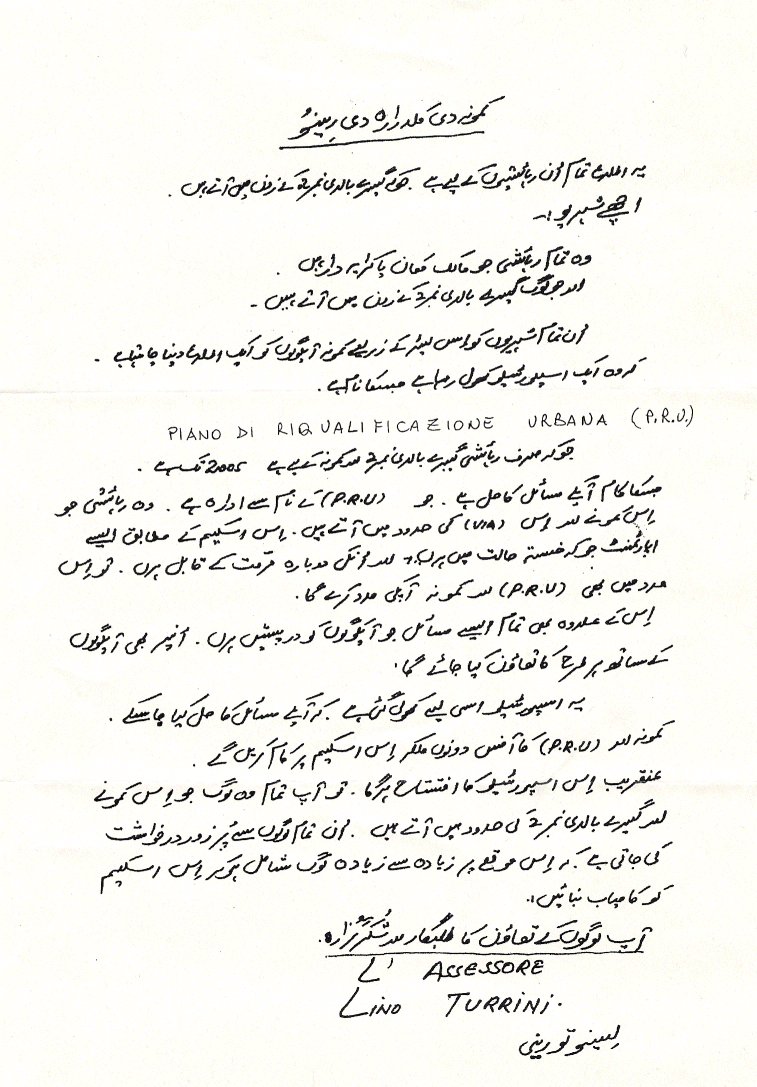 کمونہ دی کلدرارہ دی رینو
یہ اطلاع تمام اُن رہائشیوں کے لیے ہے۔ جوکہ گیبرے بالدی نمبر 2 کے زون میں آتے ہیں۔
اچھے شہریو!۔
وہ تمام رہائشی جو مالک مکان یا کرایہ دار ہیں۔
اور جو لوگ گیبرے بالدی نمبر 2 کے زون میں آتے ہیں۔
اُن تمام شہریوں کو اس لیٹر کے زریعے کمونہ آپلوگوں کو ایک اطلاع دینا چاہتا ہے۔
کہ وہ ایک اسپورتیلو کھول رہا ہے جسکا نام ہے۔
PIANO DI RIQUALIFICAZIONE URBANA (P.R.U)
جو کہ صرف رہائشی گیبرے بالدی نمبر 2 اور کمونہ کے لیے ہے 2005 تک ہے۔
جسکا کام آپکے مسائل کا حل ہے۔ جو (P.R.U) کے نام سے ادارہ ہے۔ وہ رہائشی جو
اِس کمونے اور اِس (VIA) کی حدود میں آتے ہیں۔ اِس اسکیم کے مطابق ایسے
اپارٹمنٹ جو کہ خستہ حالت میں ہوں اور اُنکی دوبارہ مرمت کے قابل ہوں۔ تو اِس
مدد میں بھی (P.R.U) اور کمونہ آپکی مدد کرے گا۔
اِس کے علاوہ بھی تمام ایسے مسائل جو آپلوگوں کو درپیش ہوں۔ اُنپر بھی آپلوگوں
کے ساتھ ہر طرح کا تعاون کیا جائے گا۔
یہ اسپورتیلو اسی لیے کھولی گئی ہے۔ کہ آپکے مسائل کا حل کیا جاسکے۔
کمونہ اور (P.R.U) کا آفس دونوں ملکر اِس اسکیم پر کام کریں گے۔
عنقریب اِس اسپورتیلو کا افتتاح ہوگا۔ تو آپ تمام وہ لوگ جو اِس کمونے
اور گیبرے بالدی نمبر 2 کی حدود میں آتے ہیں۔ اُن تمام لوگوں سے پُر زور درخواست
کی جاتی ہے کہ اِس موقع پر زیادہ سے زیادہ لوگ شامل ہوکر اِس اسکیم
کو کامیاب بنائیں۔
آپ لوگوں کے تعاون کا طلبگار اور شکرگزار۔
L' ASSESSORE
LINO TURRINI.
لیینو تورینی